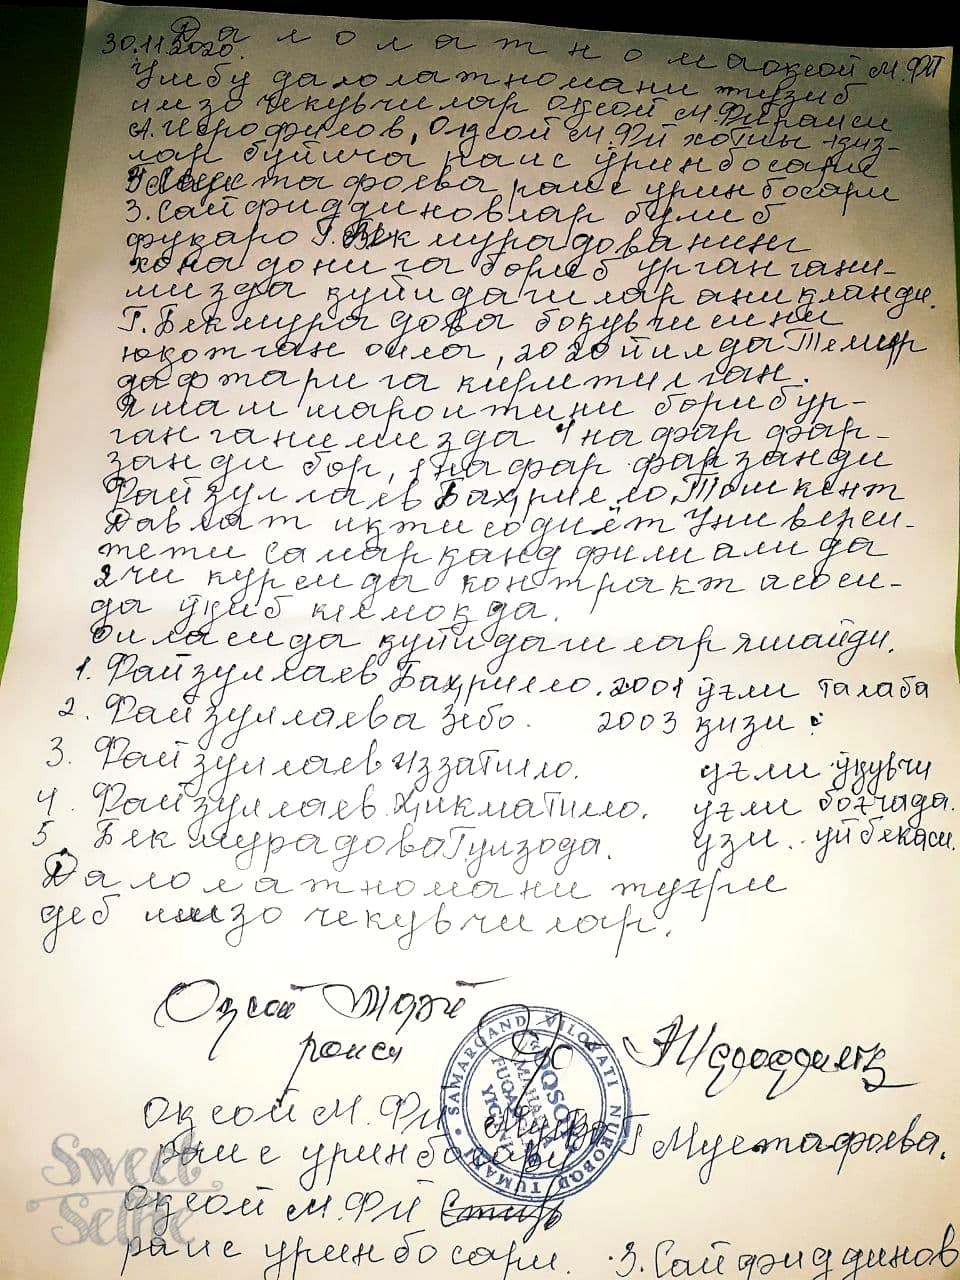 Далолатнома Оқсой М.ФЙ
30.11.2020.
Ушбу далолатномани тузиб
имзо чекувчилар Оқсой М.ФЙ раиси
А.Исрофилов, Оқсой М.ФЙ хотин қиз-
лар буйича раис ўринбосари
Мустафоева, раис уринбосари
З.Сайфиддиновлар булиб
фуқаро Г.Бекмурадованинг
хонадонига бориб ургангани-
мизда қуйидагилар аниқланди.
Г.Бекмурадова боқувчисини
йқотган оила, 2020 йилда Темир
дафтарига киритилган.
Яшаш шароитини бориб ур-
ганганимизда 4 нафар фар-
занди бор, 1 нафар фарзанди
Файзуллаев Баҳрилло Тошкент
Давлат иқтисодиёт Универси-
тети Самарқанд филиалида
2чи курсида контракт асоси-
да ўқиб келмоқда.
Оиласида қуйидагилар яшайди.
1. Файзуллаев Баҳрилло. 2001 ўғли талаба
2. Файзуллаева Зебо. 2003 қизи
3. Файзуллаев Иззатилло. уғли ўқувчи
4. Файзуллаев Ҳикматилло. уғли боғчада.
5 Бекмурадова Гулзода. узи.. уй бекаси.
Далолатномани туғри
деб имзо чекувчилар.
Оқсой МФЙ
раиси А Исрофилов
SAMARQAND VILOYATI NUROBOD TUMANI
OQSOY
MAHALLA
FUQAROLAR
YIG'INI
Оқсой М.ФЙ
раис уринбосари Г Мустафоева.
Оқсой М.ФЙ
раис уринбосари. З.Сайфиддинов
Sweet
Selfie